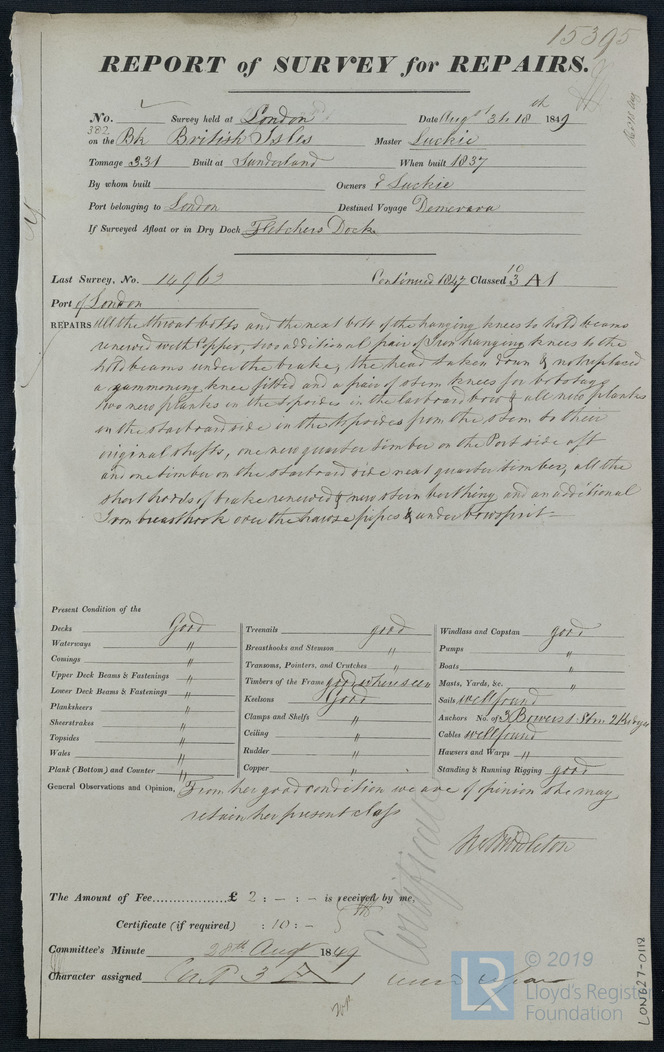 15395
REPORT of SURVEY for REPAIRS.
No. Survey held at London Date Augst 3 to 18th 1849
382 on the Bk British Isles Master Luckie
Tonnage 331 Built at Sunderland When built 1837
By whom built Owners E Luckie
Port belonging to London Destined Voyage Demerara
If Surveyed Afloat or in Dry Dock Fletchers Dock
Last Survey, No. 14963 Continued 1847 Classed 10 3 A1
Port of London
REPAIRS All the throat bolts and the next bolt of the hanging knees to hold beams
renewed with Copper, two additional pair of Iron hanging knees to the
hold beams under the brake, the head taken down & not replaced
a knee fitted and a pair of stem knees for bobstays
two new planks in the topsides in the larboard bow & all new planks
in the starboard side in the topsides from the stem to their
original shifts, one new quarter timber on the Port side aft
and one timber on the starboard side next quarter timber, all the
short hoods of brake renewed & new stern berthing and an additional
Iron breasthook over the hawse pipes & under bowsprit
Present Condition of the
Decks Good Treenails good Windlass and Capstan good
Waterways " Breasthooks and Stemson " Pumps "
Comings " Transoms, Pointers, and Crutches " Boats "
Upper Deck Beams & Fastenings " Timbers of the Frame good where seen Masts, Yards, &c. "
Lower Deck Beams & Fastenings " Keelsons Good Sails well found
Planksheers " Clamps and Shelfs " Anchors No. of 3 Bowers 1 Strm 2 Kedges
Sheerstrakes " Ceiling " Cables well found
Topsides " Rudder " Hawsers and Warps "
Wales " Copper " Standing & Running Rigging good
Plank (Bottom) and Counter "
General Observations and Opinion, From her good condition we are of opinion she may
retain her present class
Middleton
Certificate
The Amount of Fee £ 2 : - : - is received by me,
Certificate (if required) : 10 : -
Committee's Minute 28th Augt 1849
Character assigned 3 A 1
LR
© 2019
Lloyd's Register
Foundation
LON627-0112